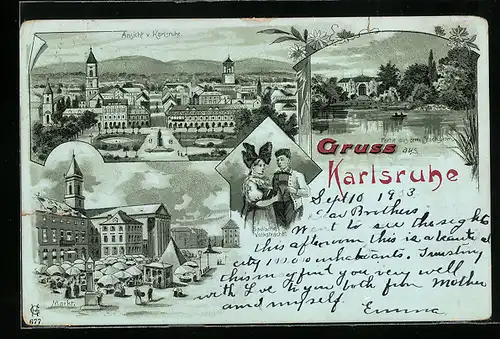 Ansicht v. Karlsruhe.
Gruss
aus
Karlsruhe
Partie aus dem
Badische
Volkstracht
Markt.
677
Sept 10
Dear Brothers
Went to see the sights
this afternoon this is a beautiful
city inhabitants. Trusting
this may find you very well
with Love to you both from Mother
and myself
Emma